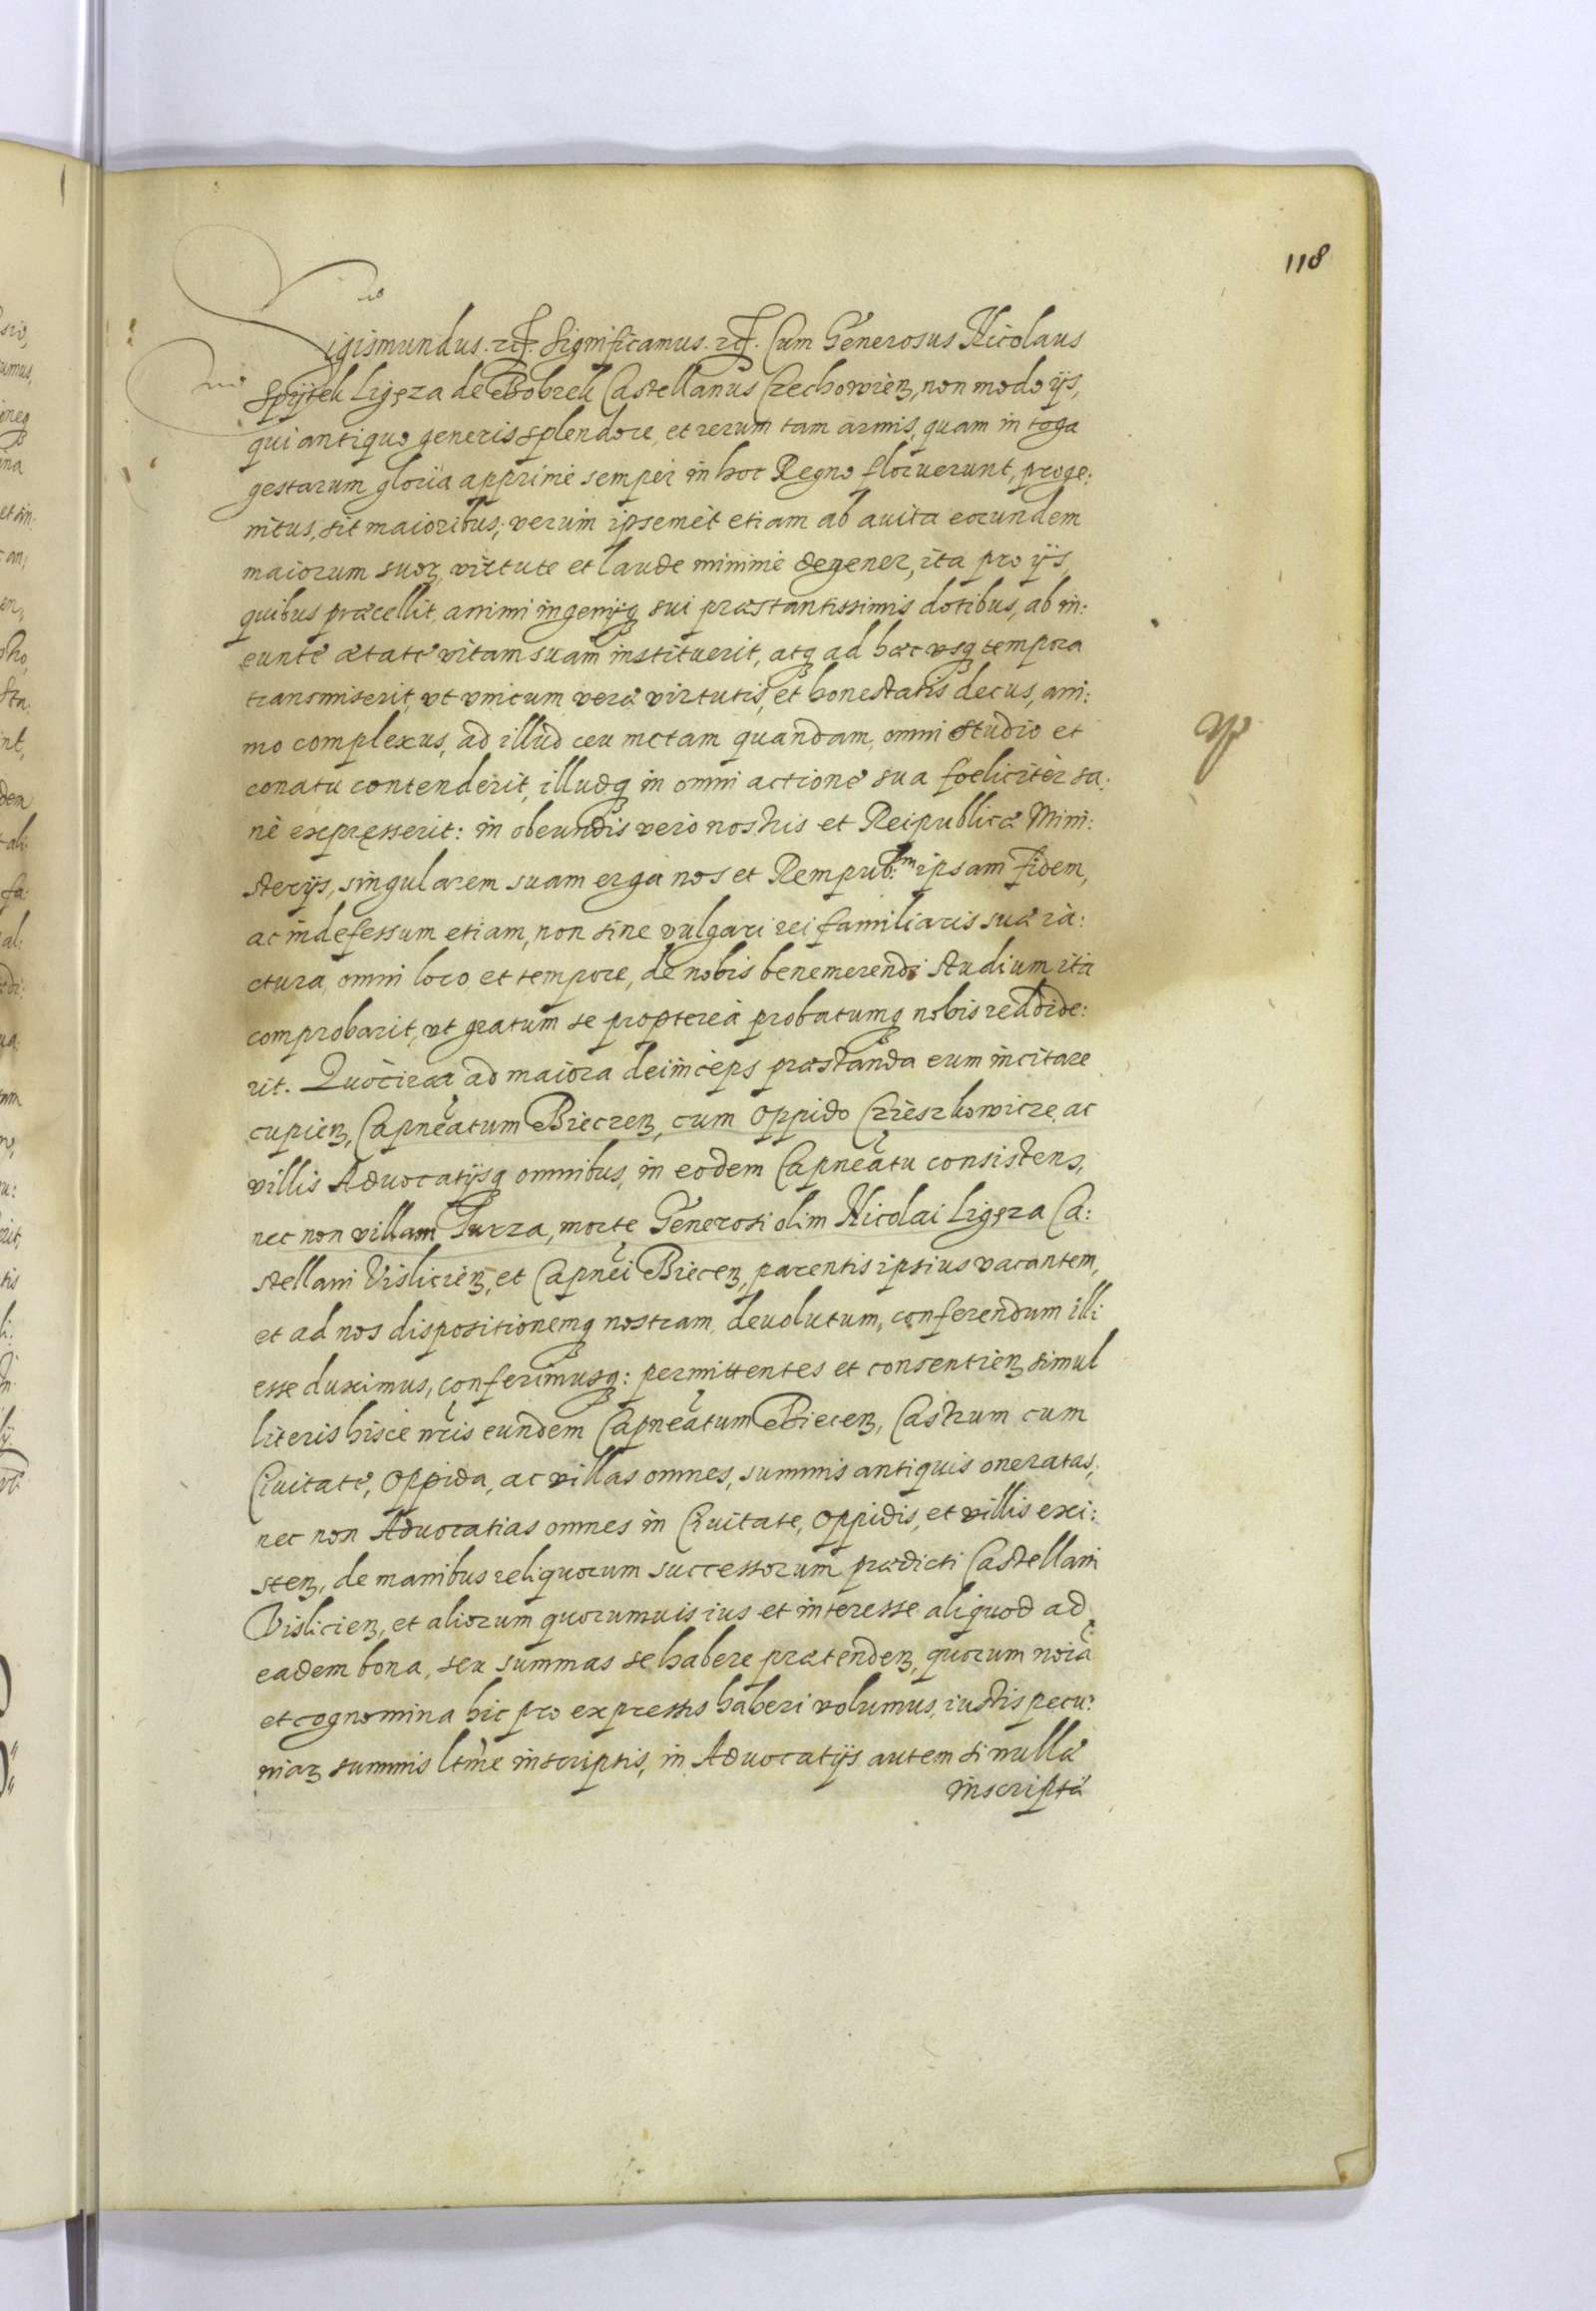 118
Sigismundus. etc. Significamus. etc. Cum Generosus Nicolaus
Spytek Ligęza de Bobrek Castellanus Czechowien, non modo ijs,
qui antiquo generis splendore, et rerum tam armis, quam in toga
gestarum gloria apprime semper in hoc Regno floruerunt, proge:
nitus, sit maioribus; verum ipsemet etiam ab auita eorundem
maiorum suor, virtute et laude minime degener, ita pro ijs,
quibus præcellit, animi ingenijq sui præstantissimis dotibus, ab in:
eunte ætate vitam suam instituerit, atq ad hæc usq tempora
transmiserit, ut unicum veræ virtutis, et honestatis decus, ani:
mo complexus, ad illud ceu metam quandam, omni studio et
conatu contenderit, illudq in omni actione sua fœliciter sa:
ne expresserit: in obeundis vero nostris et Reipublicæ Mini:
sterijs, singularem suam erga nos et Rempub:m ipsam fidem,
ac indefessum etiam, non sine vulgari rei familiaris suæ ia:
ctura, omni loco et tempore, de nobis benemerendi studium ita
comprobarit, ut gratum se propterea probatumq nobis reddide:
rit. Quocirca ad maiora deinceps præstanda eum incitare
cupien, Capneatum Bieczen, cum Oppido Czieszkowicze, ac
villis Aduocatijsq omnibus, in eodem Capneatu consistens,
nec non villam Turza, morte Generosi olim Nicolai Ligęza Ca:
stellani Vislicien, et Capnei Biecen, parentis ipsius vacantem,
et ad nos dispositionemq nostram, deuolutum, conferendum illi
esse duximus, conferimusq: permittentes et consentien simul
literis hisce nris eundem Capneatum Biecen, Castrum cum
Ciuitate, Oppida, ac villas omnes, summis antiquis oneratas,
nec non Aduocatias omnes in Ciuitate, Oppidis, et villis exi:
sten, de manibus reliquorum successorum prædicti Castellani
Vislicien, et aliorum quorumuis ius et interesse aliquod ad
eadem bona, seu summas se habere prætenden, quorum noia
et cognomina hic pro expressis haberi volumus, iustis pecu:
niar summis ltime inscriptis, in Aduocatijs autem si nulla
inscripta